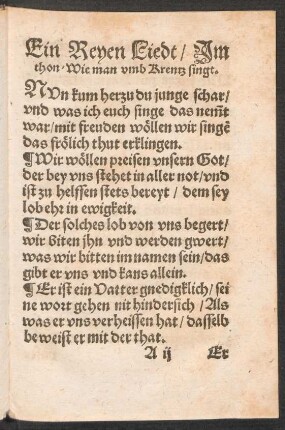 Ein Reyen Liedt / Im
thon. Wie man vmb Krentz singt.
NVn kum herzu du junge schar /
vnd was ich euch singe das nem̃t
war / mit freuden wöllen wir singẽ
das frölich thut erklingen.
¶ Wir wöllen preisen vnsern Got /
der bey vns stehet in aller not / vnd
ist zu helffen stets bereyt / dem sey
lob ehr in ewigkeit.
¶ Der solches lob von vns begert /
wir biten jhn vnd werden gwert /
was wir bitten im namen sein / das
gibt er vns vnd kans allein.
¶ Er ist ein Vatter gnedigklich / sei
ne wort gehen nit hindersich / Als
was er vns verheissen hat / dasselb
beweist er mit der that.
A ij Er